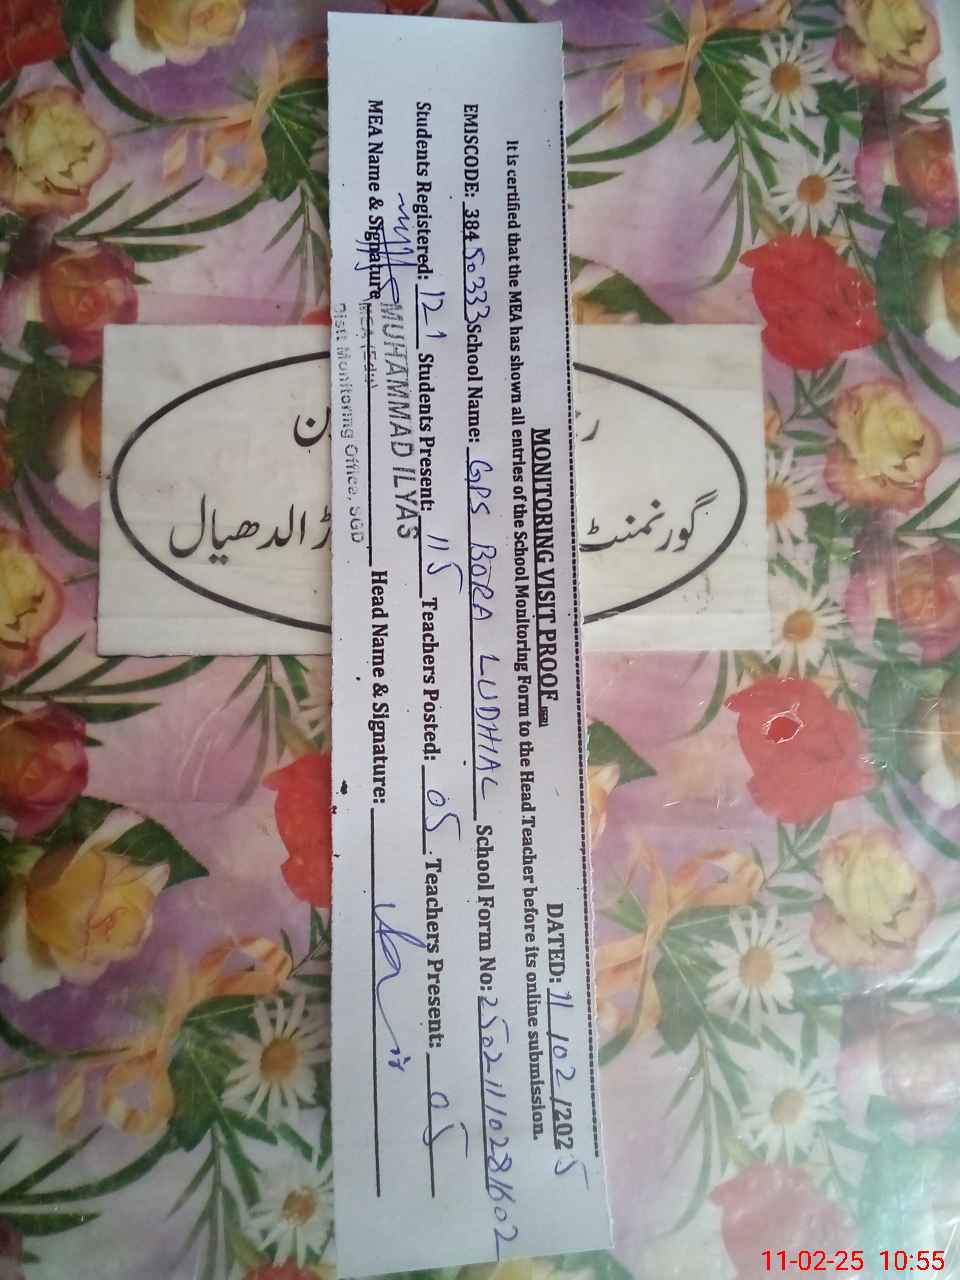 MONITORING VISIT PROOF DATED: 11/02/2025
It is certified that the MEA has shown all entries of the School Monitoring Form to the Head Teacher before its online submission.
EMISCODE: 38450333 School Name: GPS BORA LUDHIAL School Form No: 25021110281602
Students Registered: 121 Students Present: 115 Teachers Posted: 05 Teachers Present: 05
MEA Name & Signature Head Name & Signature:
MUHAMMAD ILYAS
MEA (Edu)
Distt Monitoring Office, SGD
گورنمنٹ
الدھیال
11-02-25 10:55